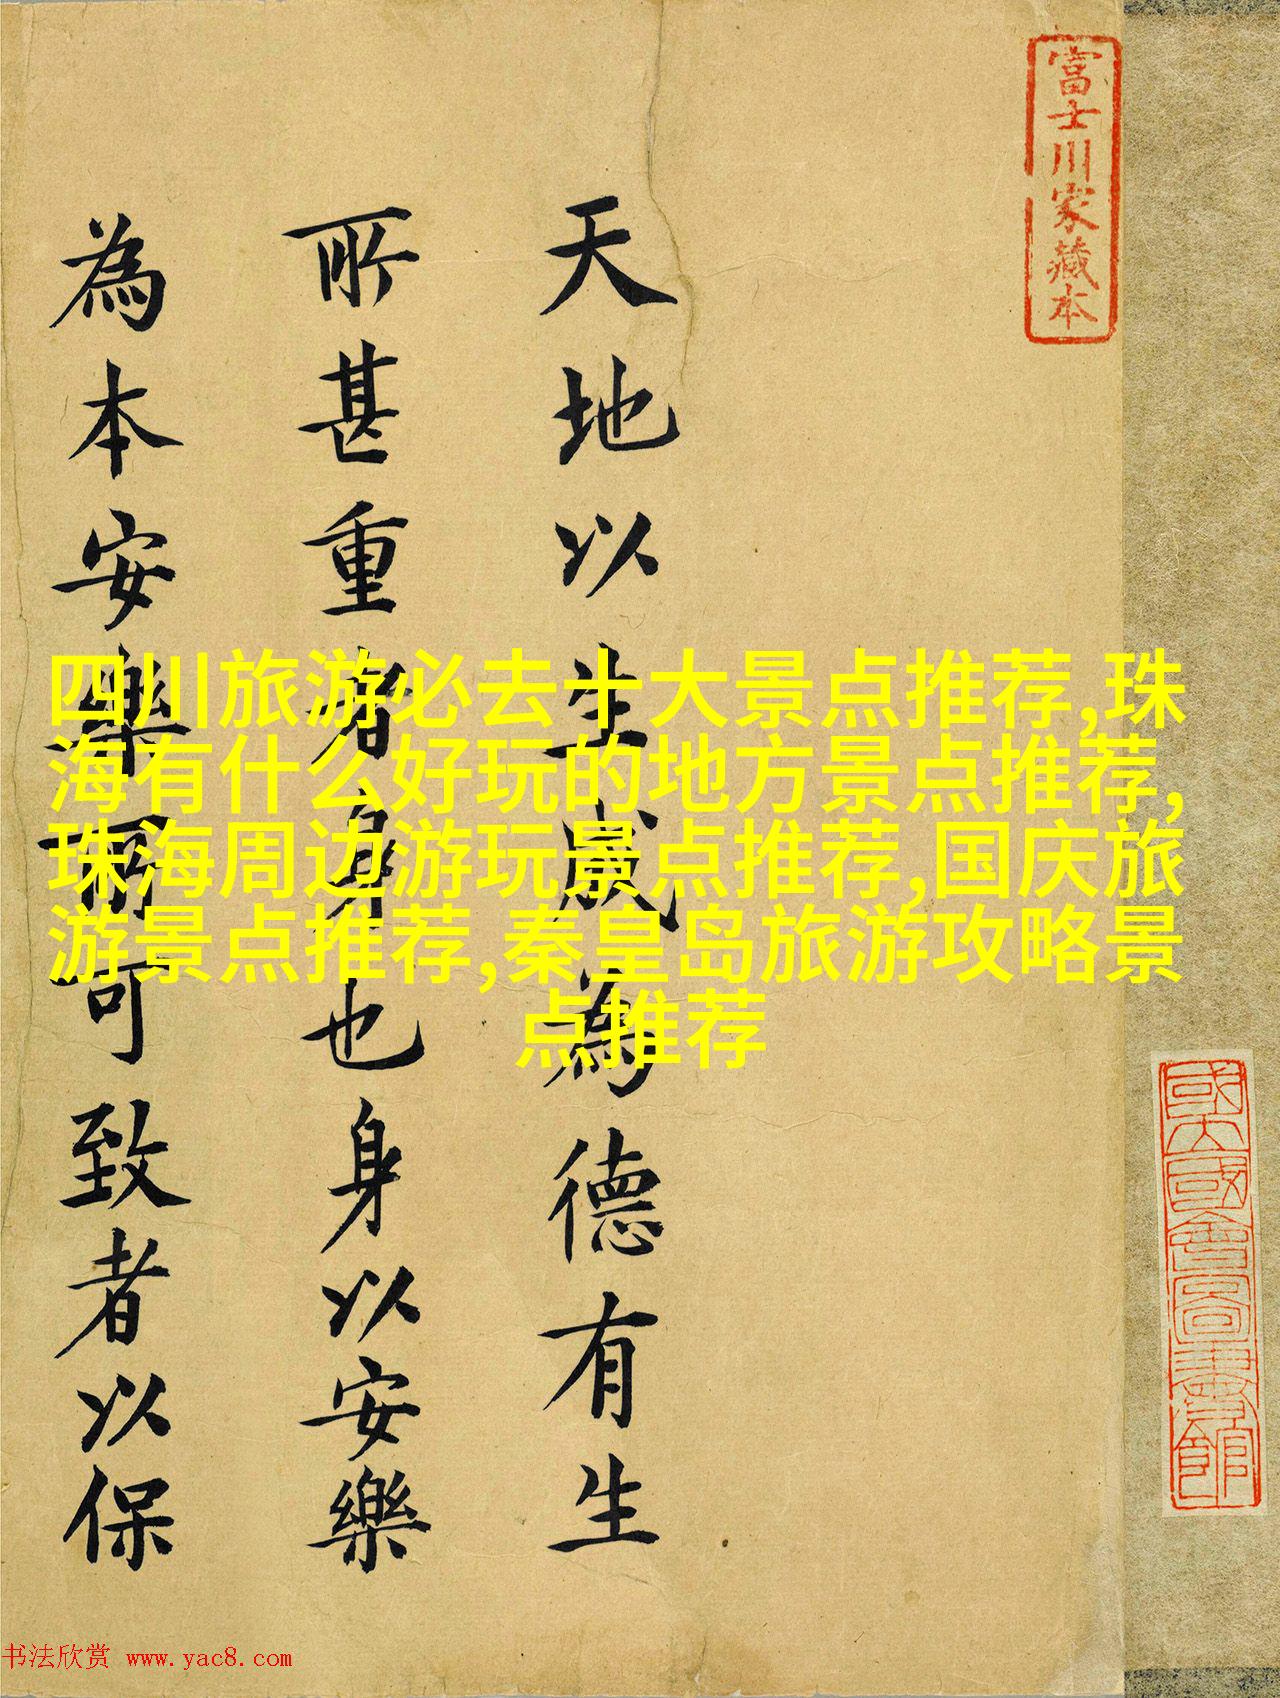 富士川家藏本
天地以生成為德有生
所甚重者身也身以安樂
為本安樂所可致者以保
四川旅游必去十大景点推荐,珠
海有什么好玩的地方景点推荐,
珠海周边游玩景点推荐,国庆旅
游景点推荐,秦皇岛旅游攻略景
点推荐
國立國會圖書館
书法欣赏 www.yac8.com